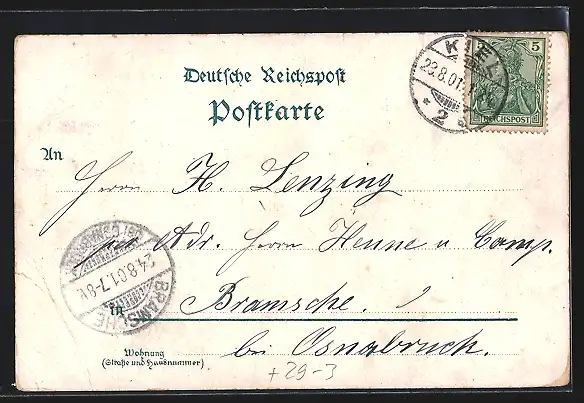 KIEL
23.8.01.
* 2
5
REICHSPOST
Deutsche Reichspost
Postkarte
An
Herrn H. Lenzing
per Adr. Herrn Henne u Comp.
24.8.01.7-8V.
BRAMSCHE
in Bramsche.
bei Osnabruck.
Wohnung
(Straße und Hausnummer)
+29-3